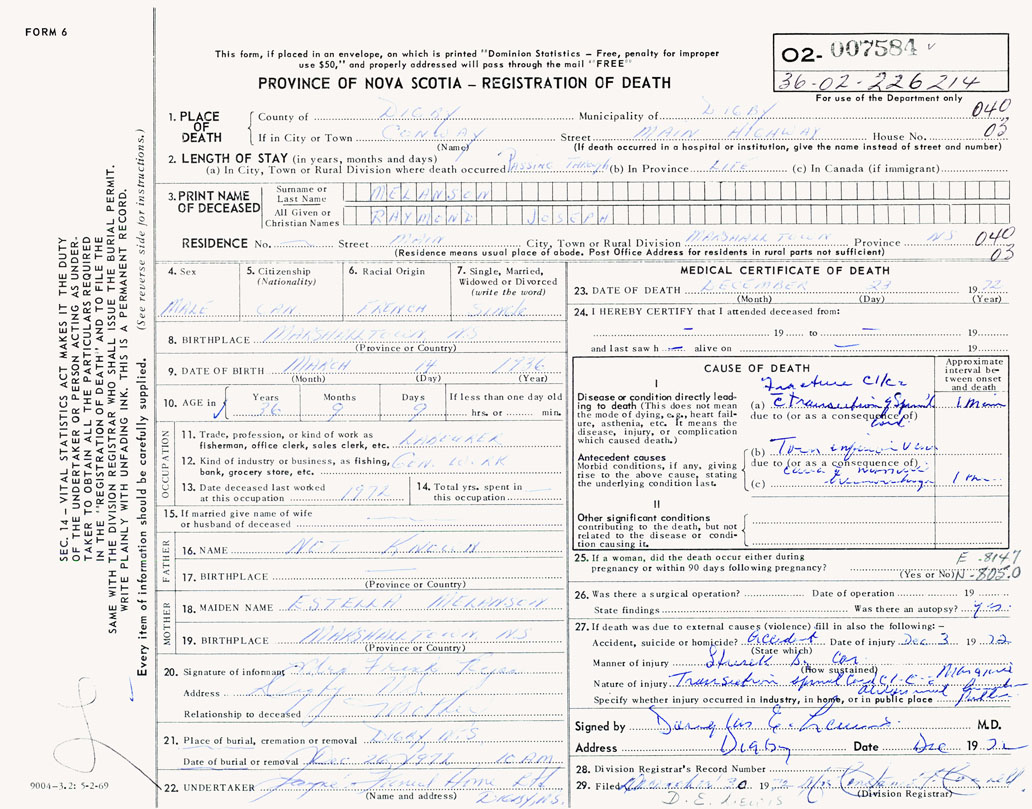 FORM 6
This form, if placed in an envelope, on which is printed "Dominion Statistics – Free, penalty for improper
use $50," and properly addressed will pass through the mail "FREE"
PROVINCE OF NOVA SCOTIA – REGISTRATION OF DEATH
02- 007584
36-02-226214
For use of the Department only
1. PLACE OF DEATH
County of DIGBY Municipality of DIGBY 040
If in City or Town CONWAY Street MAIN HIGHWAY House No. 03
(Name) (If death occurred in a hospital or institution, give the name instead of street and number)
2. LENGTH OF STAY (in years, months and days)
(a) In City, Town or Rural Division where death occurred PASSING THROUGH (b) In Province LIFE (c) In Canada (if immigrant)
3. PRINT NAME OF DECEASED
Surname or Last Name MELANSON
All Given or Christian Names RAYMOND JOSEPH
RESIDENCE No. — Street MAIN City, Town or Rural Division MARSHALLTOWN Province NS 040
(Residence means usual place of abode. Post Office Address for residents in rural parts not sufficient) 03
4. Sex
MALE
5. Citizenship
(Nationality)
CAN
6. Racial Origin
FRENCH
7. Single, Married,
Widowed or Divorced
(write the word)
SINGLE
8. BIRTHPLACE MARSHALLTOWN NS
(Province or Country)
9. DATE OF BIRTH MARCH 14 1936
(Month) (Day) (Year)
10. AGE in Years Months Days If less than one day old
36 9 9 hrs. or min.
OCCUPATION
11. Trade, profession, or kind of work as LABOURER
fisherman, office clerk, sales clerk, etc.
12. Kind of industry or business, as fishing, GEN. WORK
bank, grocery store, etc.
13. Date deceased last worked
at this occupation 1972
14. Total yrs. spent in
this occupation
15. If married give name of wife
or husband of deceased —
FATHER
16. NAME NOT KNOWN
17. BIRTHPLACE —
(Province or Country)
MOTHER
18. MAIDEN NAME ESTELLA MELANSON
19. BIRTHPLACE MARSHALLTOWN, NS
(Province or Country)
20. Signature of informant Mrs Frank Ryan
Address Digby N.S.
Relationship to deceased Mother
21. Place of burial, cremation or removal DIGBY, N.S
Date of burial or removal Dec 26, 1972 10 AM
22. UNDERTAKER Funeral Home
(Name and address) DIGBY, N.S.
MEDICAL CERTIFICATE OF DEATH
23. DATE OF DEATH DECEMBER 23 1972
(Month) (Day) (Year)
24. I HEREBY CERTIFY that I attended deceased from:
— 19 to — 19
and last saw h — alive on — 19
CAUSE OF DEATH
Approximate interval between onset and death
I
Disease or condition directly leading
to death (This does not mean
the mode of dying, e.g., heart failure,
asthenia, etc. It means the
disease, injury, or complication
which caused death.)
Fracture C1/C2
(a) c Transection of Spinal Cord 1 Min
due to (or as a consequence of)
Antecedent causes
Morbid conditions, if any, giving
rise to the above cause, stating
the underlying condition last.
(b) Torn inferior Vena
due to (or as a consequence of)
(c) 1 Min
II
Other significant conditions
contributing to the death, but not
related to the disease or condition
causing it.
25. If a woman, did the death occur either during
pregnancy or within 90 days following pregnancy? (Yes or No)
E -8147
N -805.0
26. Was there a surgical operation? Date of operation 19
State findings Was there an autopsy? yes
27. If death was due to external causes (violence) fill in also the following: –
Accident, suicide or homicide? accident Date of injury Dec 3 1972
(State which)
Manner of injury Struck by Car
(How sustained)
Nature of injury Transection spinal cord C1-C2
Specify whether injury occurred in industry, in home, or in public place
Signed by Douglas E. Lewis M.D.
Address Digby Date Dec 1972
28. Division Registrar's Record Number
29. Filed 30 1972 Mrs Constance
(Division Registrar)
D. E. LEWIS
SEC. 14 – VITAL STATISTICS ACT MAKES IT THE DUTY
OF THE UNDERTAKER OR PERSON ACTING AS UNDERTAKER
TO OBTAIN ALL THE PARTICULARS REQUIRED
IN THE "REGISTRATION OF DEATH" AND TO FILE THE
SAME WITH THE DIVISION REGISTRAR WHO SHALL ISSUE THE BURIAL PERMIT.
WRITE PLAINLY WITH UNFADING INK. THIS IS A PERMANENT RECORD.
Every item of information should be carefully supplied. (See reverse side for instructions.)
9004-3.2: 5-2-69